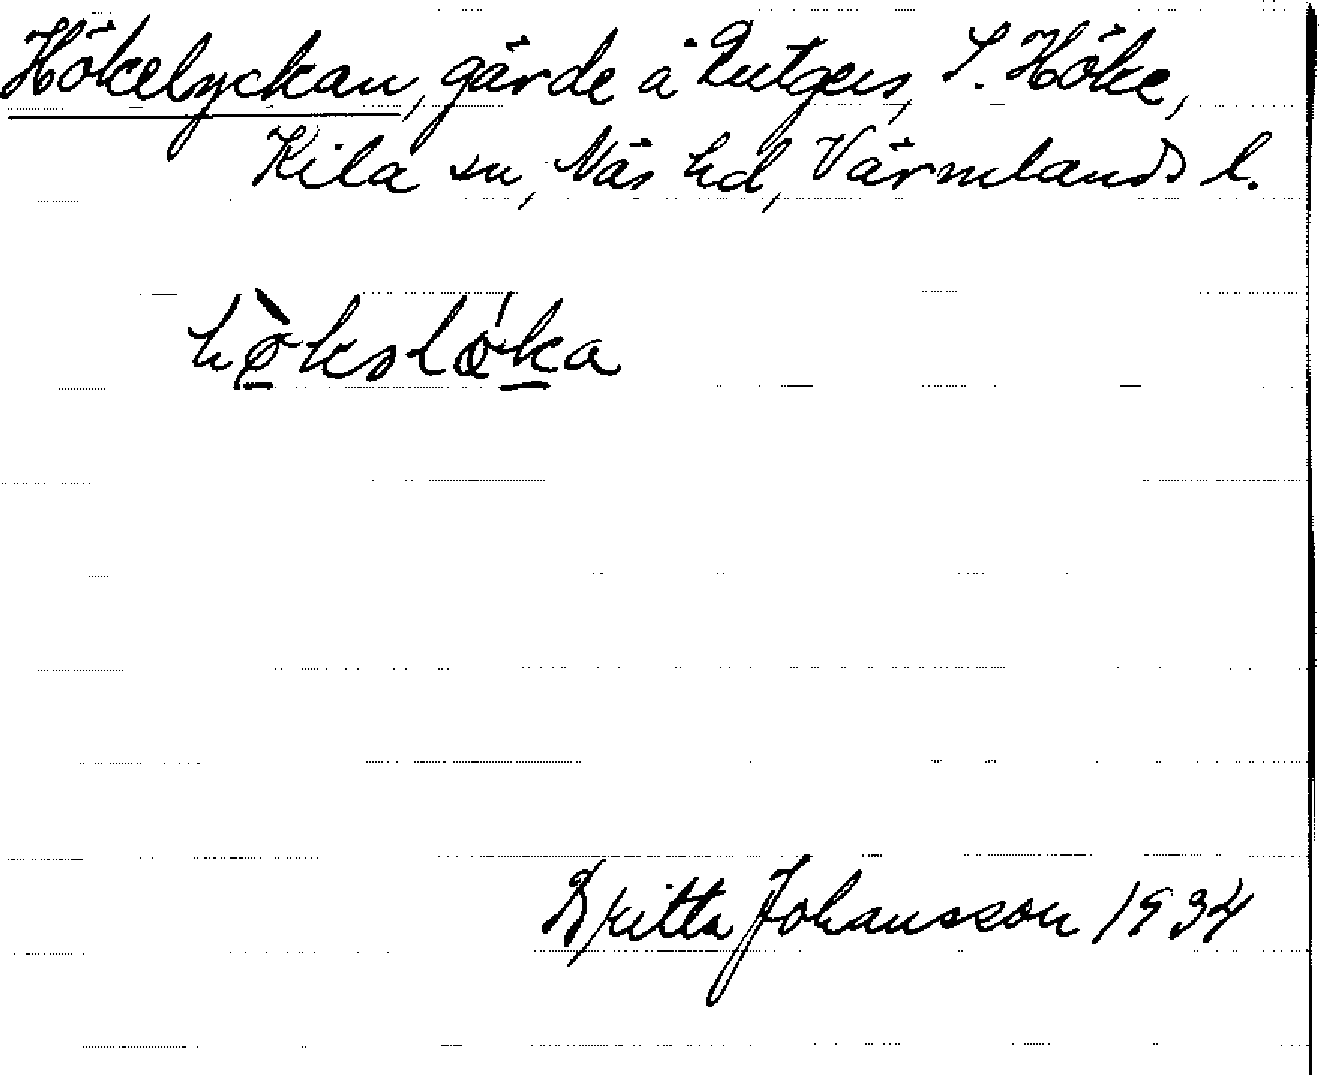 Hökelyckan, gärde å Rutgers, S. Höke,
Kila sn, Näs hd, Värmlands l.
Britta Johansson 1934